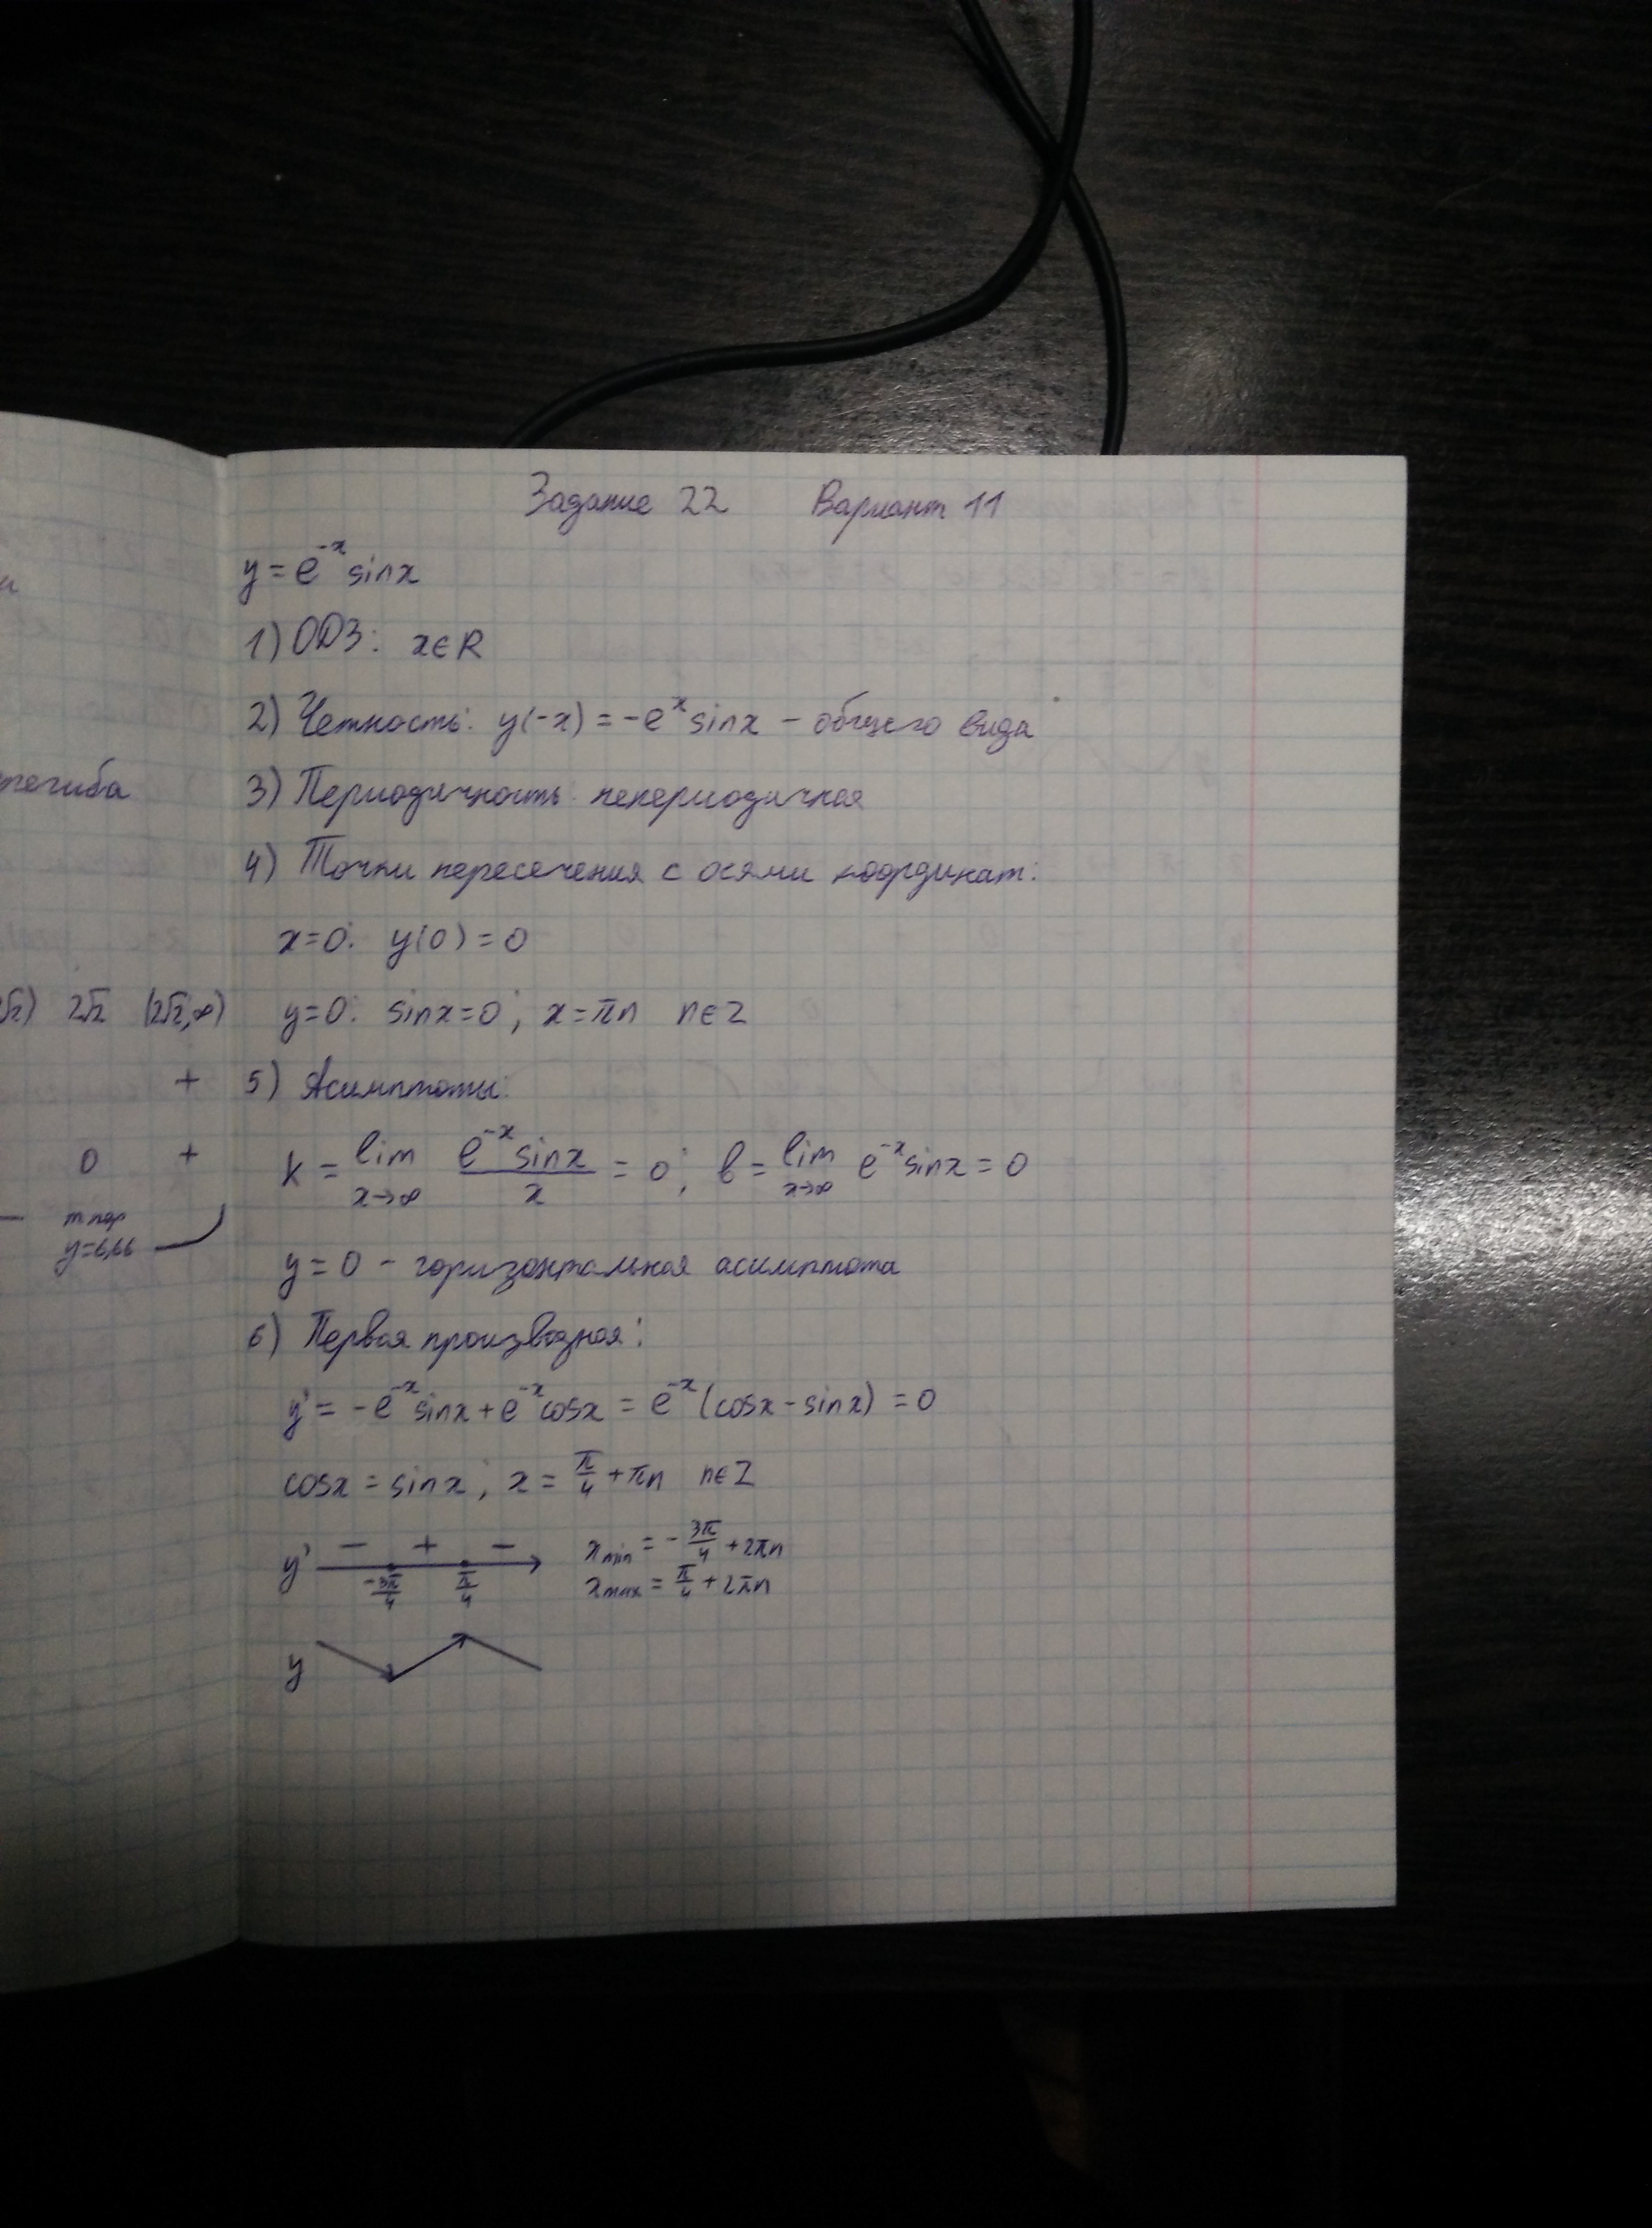 Задание 22 Вариант 11
y = e^{-x} sinx
1) ОДЗ: x∈R
2) Четность: y(-x) = -e^{x} sinx - общего вида
3) Периодичность: непериодичная
4) Точки пересечения с осями координат:
x=0: y(0) = 0
y=0: sinx=0; x=πn n∈Z
5) Асимптоты:
k = lim_{x→∞} \frac{e^{-x} sinx}{x} = 0; b = lim_{x→∞} e^{-x} sinx = 0
y = 0 - горизонтальная асимптота
6) Первая производная:
y' = -e^{-x} sinx + e^{-x} cosx = e^{-x} (cosx - sinx) = 0
cosx = sinx; x = \frac{π}{4} + πn n∈Z
y' - + - x_{min} = -\frac{3π}{4} + 2πn
-\frac{3π}{4} \frac{π}{4} x_{max} = \frac{π}{4} + 2πn
y
региба
2√2 (2√2,∞)
+
0 +
т. пер
y=6,66